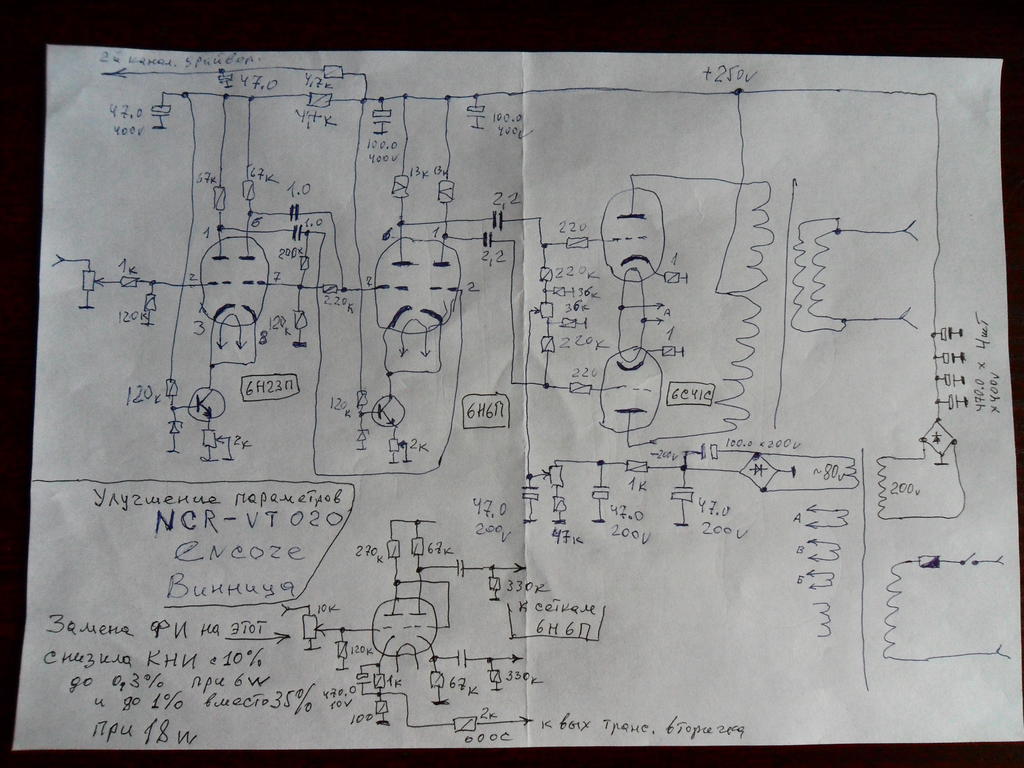 2й канал. драйвер.
47.0
4,7к
+250v
47.0
400v
4,7к
100.0
400v
100.0
400v
67к
67к
13к
13к
1.0
1.0
2,2
2,2
1
6
6
1
200к
220
1к
2
7
220к
2
220к
36к
36к
220к
1
А
1
120к
3
8
120к
220
120к
2к
6Н23П
120к
2к
6Н6П
6С41С
470.0 x 400v
x 4шт
100.0 x 200v
-200v
~80v
200v
1к
47.0
200v
47к
47.0
200v
47.0
200v
А
В
Б
Улучшение параметров
NCR-VT020
encore
Винница
270к
67к
330к
к сеткам
6Н6П
10к
120к
1к
67к
330к
470.0
10v
100
2к
ООС
к вых транс. вторичка
Замена ФИ на этот
снизила КНИ с 10%
до 0,3% при 6w
и до 1% вместо 35%
при 18w